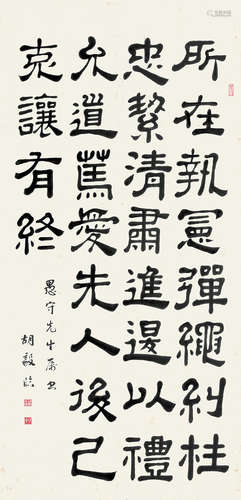 所在執憲彈繩糾枉
忠絜清肅進退以禮
允道篤愛先人後己
克讓有終
愚守先生屬書
胡毅生